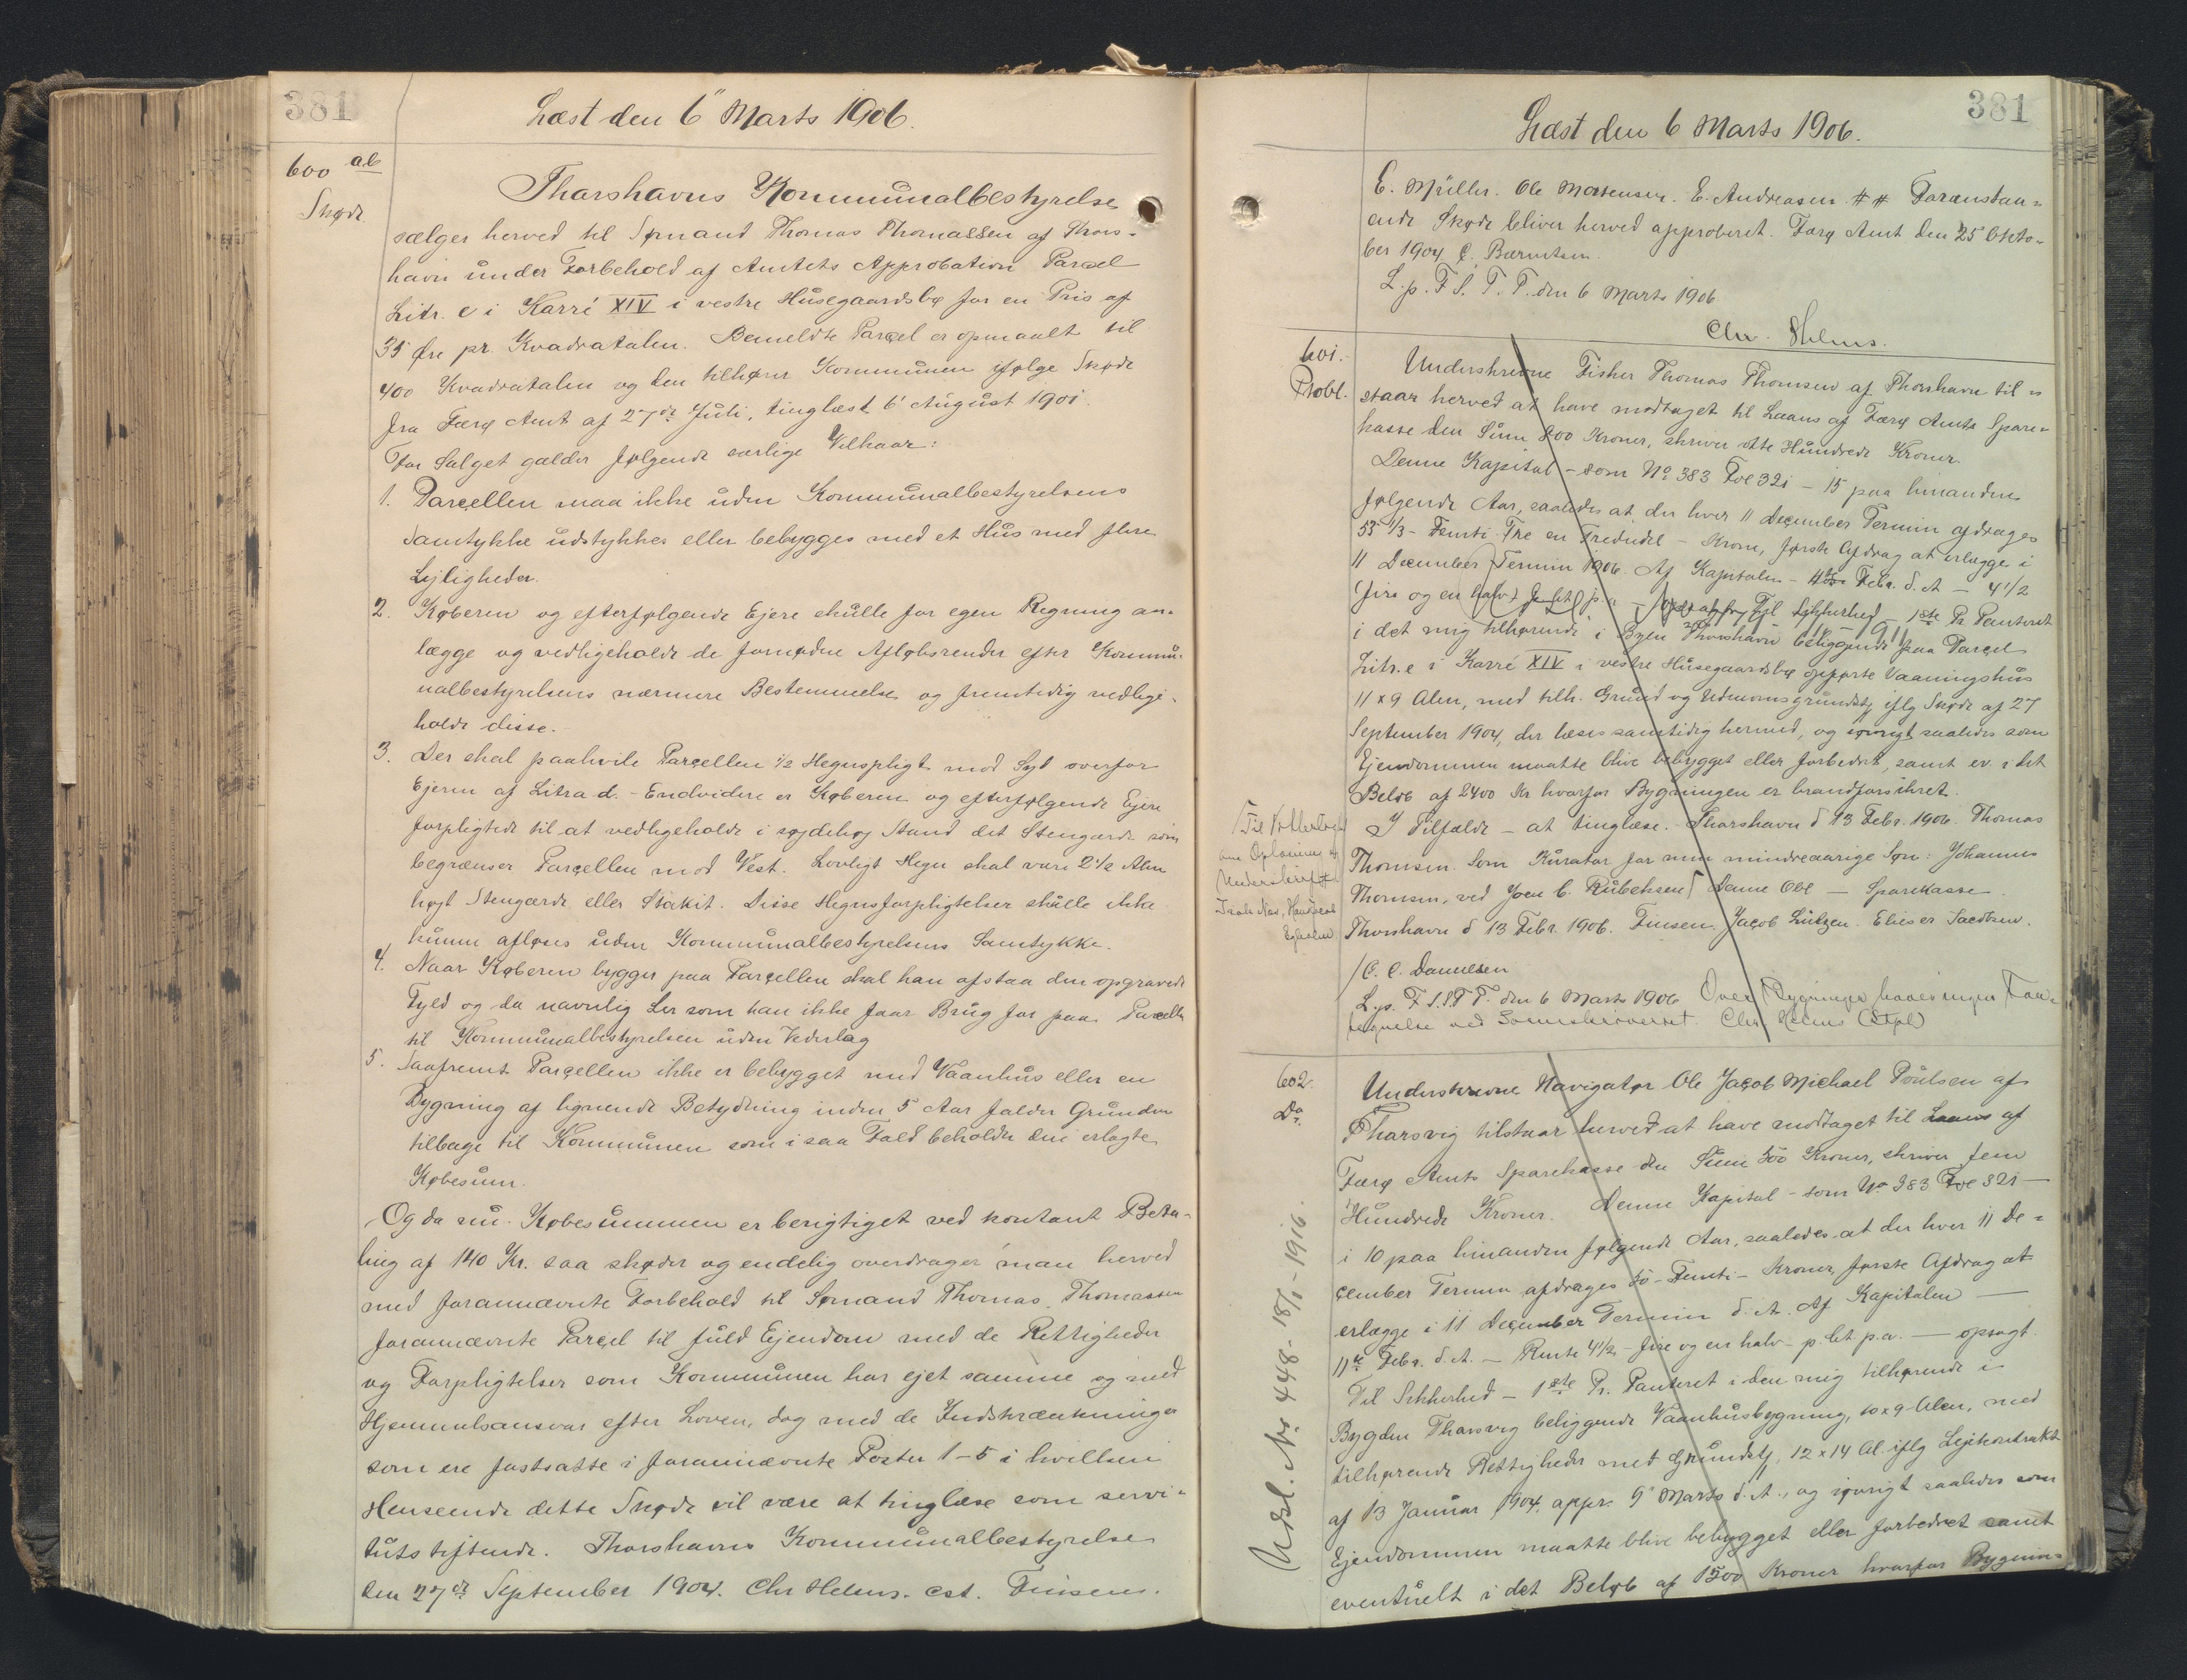 381
Læst den 6" Marts 1906.
600 ab
Skøde
Thorshavns Kommunalbestyrelse
sælger herved til Sømand Thomas Thomassen af Thors-
havn under Forbehold af Amtets Approbation Parcel
Litr. e i Karré XIV i vestre Husegaardsbø for en Pris af
35 Øre pr. Kvadratalen. Bemeldte Parcel er opmaalt til
400 Kvadratalen og den tilhører Kommunen ifølge Skøde
fra Færø Amt af 27de Juli, tinglæst 6' August 1901.
For Salget gælder følgende særlige Vilkaar:
1. Parcellen maa ikke uden Kommunalbestyrelsens
Samtykke udstykkes eller bebygges med et Hus med flere
Lejligheder.
2. Køberen og efterfølgende Ejere skulle for egen Regning an-
lægge og vedligeholde de fornødne Afløbsrender efter Kommu-
nalbestyrelsens nærmere Bestemmelse og fremtidig vedlige-
holde disse.
3. Der skal paahvile Parcellen 1/2 Hegnspligt mod Syd overfor
Ejeren af Litra d. - Endvidere er Køberen og efterfølgende Ejere
forpligtede til at vedligeholde i sødehøj Stand det Stengærde som
begrænser Parcellen mod Vest. Lovligt Hegn skal være 2 1/2 Alen
højt Stengærde eller Stakit. Disse Hegnsforpligtelser skulle ikke
kunne afløses uden Kommunalbestyrelsens Samtykke.
4. Naar Køberen bygger paa Parcellen skal han afstaa den opgravede
Fyld og da navnlig Ler som han ikke faar Brug for paa Parcellen
til Kommunalbestyrelsen uden Vederlag
5. Saafremt Parcellen ikke er bebygget med Vaanhus eller en
Bygning af lignende Betydning inden 5 Aar falder Grunden
tilbage til Kommunen som i saa Fald beholder den erlagte
Købesum.
Og da nu Købesummen er berigtiget ved kontant Beta-
ling af 140 Kr. saa skøder og endelig overdrager man herved
med forannævnte Forbehold til Sømand Thomas Thomassen
forannævnte Parcel til fuld Ejendom med de Rettigheder
og Forpligtelser som Kommunen har ejet samme og med
Hjemmelsansvar efter Loven, dog med de Indskrænkninger
som ere fastsatte i forannævnte Poster 1-5 i hvilken
Henseende dette Skøde vil være at tinglæse som servi-
tutstiftende. Thorshavns Kommunalbestyrelse
den 27de September 1904. Chr Helms. cst. Finsen.
381
Læst den 6 Marts 1906.
E. Müller. Ole Mortensen. E. Andreasen. ## Foranstaa-
ende Skøde bliver herved approberet. Færø Amt den 25 Okto-
ber 1904. C. Bærentsen.
L. p. F. S. T. T. den 6 Marts 1906
Chr. Helms.
601.
Probl.
Underskrevne Fisker Thomas Thomsen af Thorshavn til-
staar herved at have modtaget til Laans af Færø Amts Spare-
kasse den Sum 800 Kroner, skriver otte Hundrede Kroner.
Denne Kapital - som No 383 Fol 321 - 15 paa hinanden
følgende Aar, saaledes at der hver 11 December Termin afdrages
53 1/3 - Femti Tre en Trediedel - Krone, første Afdrag at erlægge i
11 December Termin 1906. Af Kapitalen - Febr. d. A - 4 1/2
(fire og en halv) p.a - Til Sikkerhed - 1ste Pr. Panteret
i det mig tilhørende i Byen Thorshavn beliggende paa Parcel
Litr. e i Karré XIV i vestre Husegaardsbø opførte Vaaningshus
11 x 9 Alen, med tilh. Grund og Udenomsgrundstj iflg Skøde af 27
September 1904, der læses samtidig hermed, og iøvrigt saaledes som
Ejendommen maatte blive bebygget eller forbedret, samt ev. i det
Beløb af 2400 Kr hvorfor Bygningen er brandforsikret.
I Tilfælde - at tinglæse. Thorshavn d 13 Febr. 1906. Thomas
Thomsen. Som Kurator for min mindreaarige Søn: Johannes
Thomsen, ved Joen C. Rubeksen Denne Obl - Sparekasse
Thorshavn d 13 Febr. 1906. Finsen. Jacob Lützen. Elieser Jacobsen.
/C. C. Danielsen
L. p. F. S. T. T. den 6 Marts 1906 Over Bygningen haves ingen Tax-
tegnelse ved Sorenskriveriet. Chr. Helms (Stpl)
Til Vitterlighed
om Oplæsning &
Underskrift
602.
Do.
Underskrevne Navigatør Ole Jacob Michael Poulsen af
Thorsvig tilstaar herved at have modtaget til Laans af
Færø Amts Sparekasse den Sum 500 Kroner, skriver fem
Hundrede Kroner. Denne Kapital - som No 383 Fol 321 -
i 10 paa hinanden følgende Aar, saaledes at der hver 11 De-
cember Termin afdrages 50 - Femti - Kroner, første Afdrag at
erlægge i 11 December Termin d. A. Af Kapitalen -
11te Febr. d. A. - Rente 4 1/2 - fire og en halv - p Ct. p.a. - opsagt.
Til Sikkerhed - 1ste Pr. Panteret i den mig tilhørende i
Bygden Thorsvig beliggende Vaanhusbygning, 10 x 9 Alen, med
tilhørende Rettigheder med Grundstj, 12 x 14 Al. iflg Lejekontrakt
af 13 Januar 1904, appr. 9' Marts d. A., og iøvrigt saaledes som
Ejendommen maatte blive bebygget eller forbedret samt
eventuelt i det Beløb af 1500 Kroner hvorfor Bygnin-
Udsl. Nr. 448 - 18/1 - 1916.